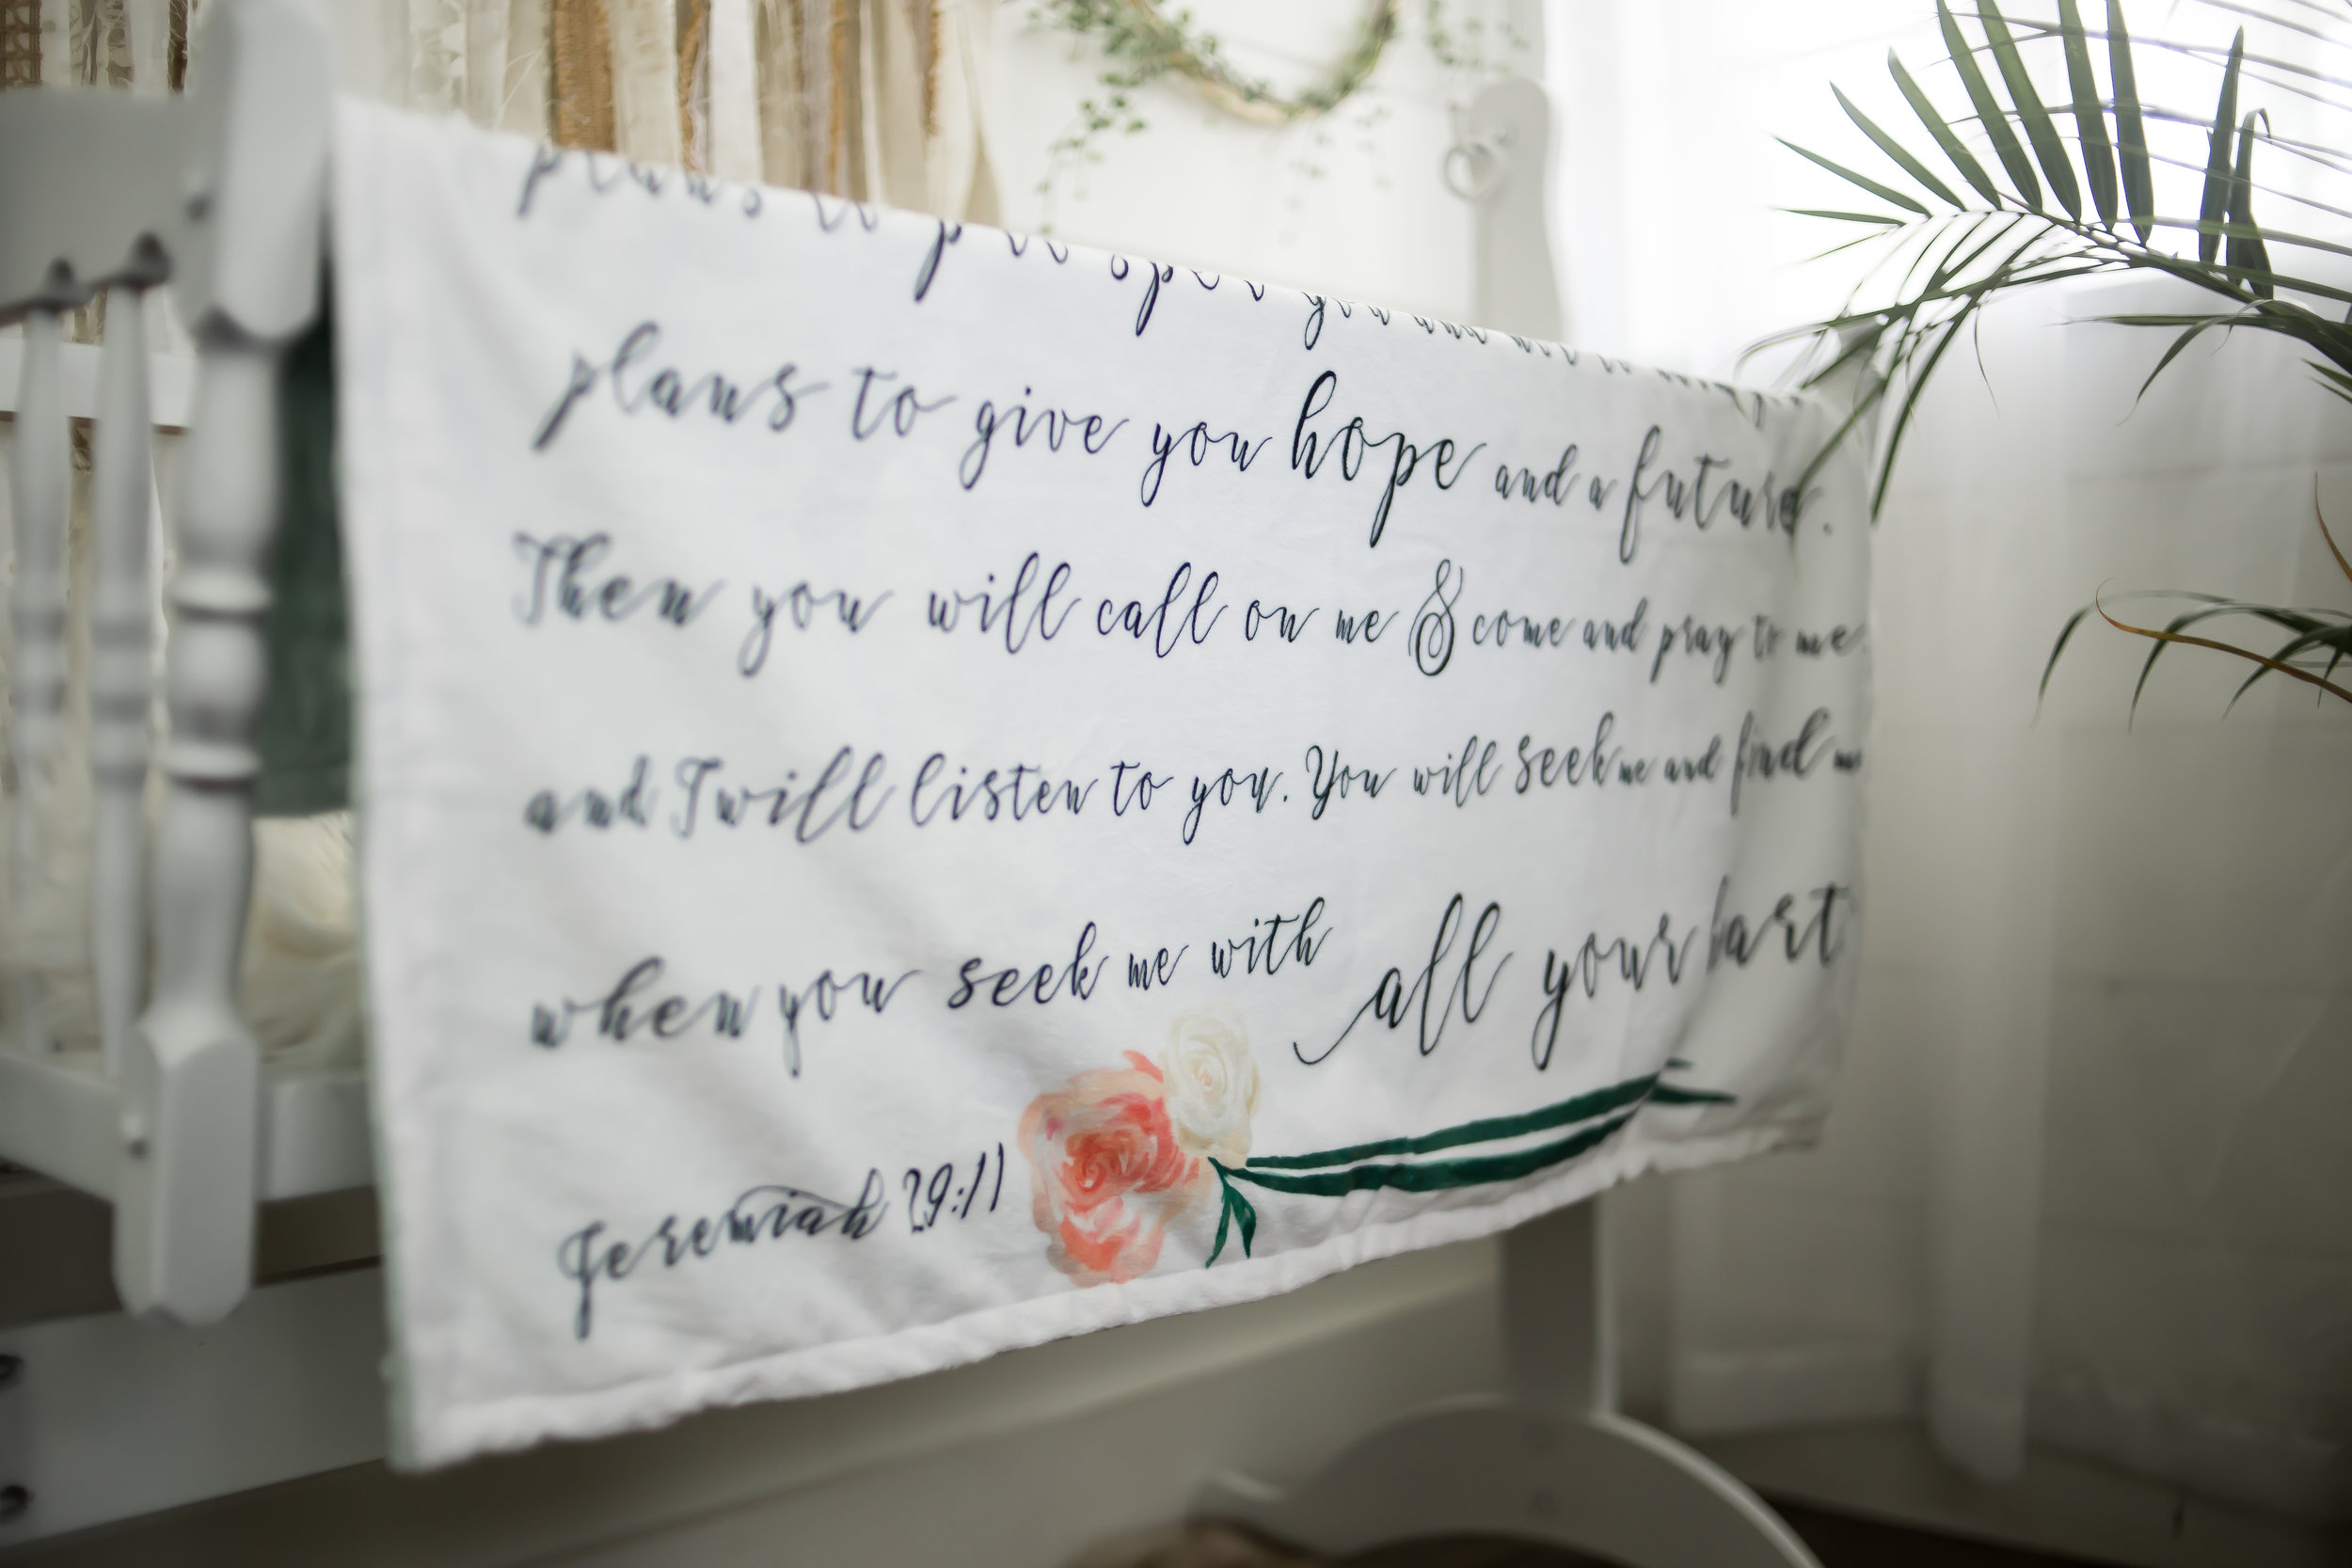 plans to prosper you and not to
plans to give you hope and a future.
Then you will call on me & come and pray to me
and I will listen to you. You will seek me and find me
when you seek me with all your hart
Jeremiah 29:11